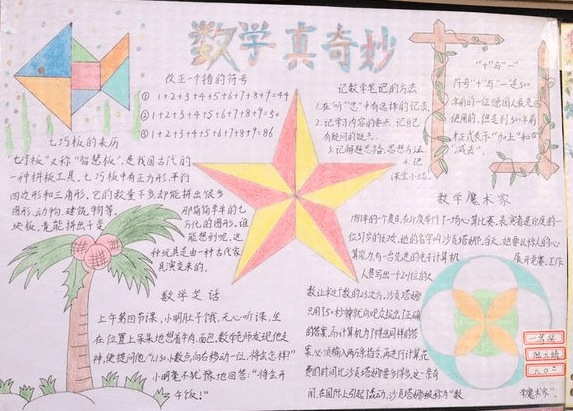 数学真奇妙
改正一个错的符号
① 1+2+3+4+5+6+7+8+9=44
② 1+2+3+4+5+6+7+8+9=30
③ 1+2+3+4+5+6+7+8+9=86
七巧板的来历
七巧板又称"智慧板",是我国古代的
一种拼板工具。七巧板中有正方形,平行
四边形和三角形。它的数量不多却能拼出很多
图形,动物,建筑物等。
块板,竟能拼出千变
那简简单单的七
万化的图形。谁
能想到呢,这
种玩具是由一种古代家
具演变来的。
记数学笔记的方法
1.在听"
"中有选择的记录
2.记学习内容的要点,记自己
有疑问的疑点。
3.记解题思路,思想方法。
4.记
课堂小结。
"+"与"一"
符号"+"与"一"是500
年前的一位德国人最先
使用的,但是到500年前
才正式表示"加上"和
"减去"。
数学笑话
上午第四节课,小明肚子饿,无心听课,坐
在位置上呆呆地想着牛肉,面包,数学老师发现他走
神,便提问他"1.130小数点,向右移动一位,将会怎样?"
小明毫不犹豫地回答:"将会开
午饭!"
数学魔术家
1981年的一个夏日,在印度举行了一场心算比赛。表演者是印度的一
位37岁的妇女,她的名字叫沙贡塔娜。当天,她要以惊人的心
算能力,与一台先进的电子计算机
展开竞赛,工作
人员写出一个201位的大
数,让求这个数的23次方,沙贡塔娜
只用50秒钟就向观众报出了正确
的答案,而计算机为了得出同样的答
案,必须输入两万条指令,再进行计算,花
费的时间比沙贡塔娜要多得多。这一奇
闻,在国际上引起了轰动,沙贡塔娜被称为"数
学魔术家"。